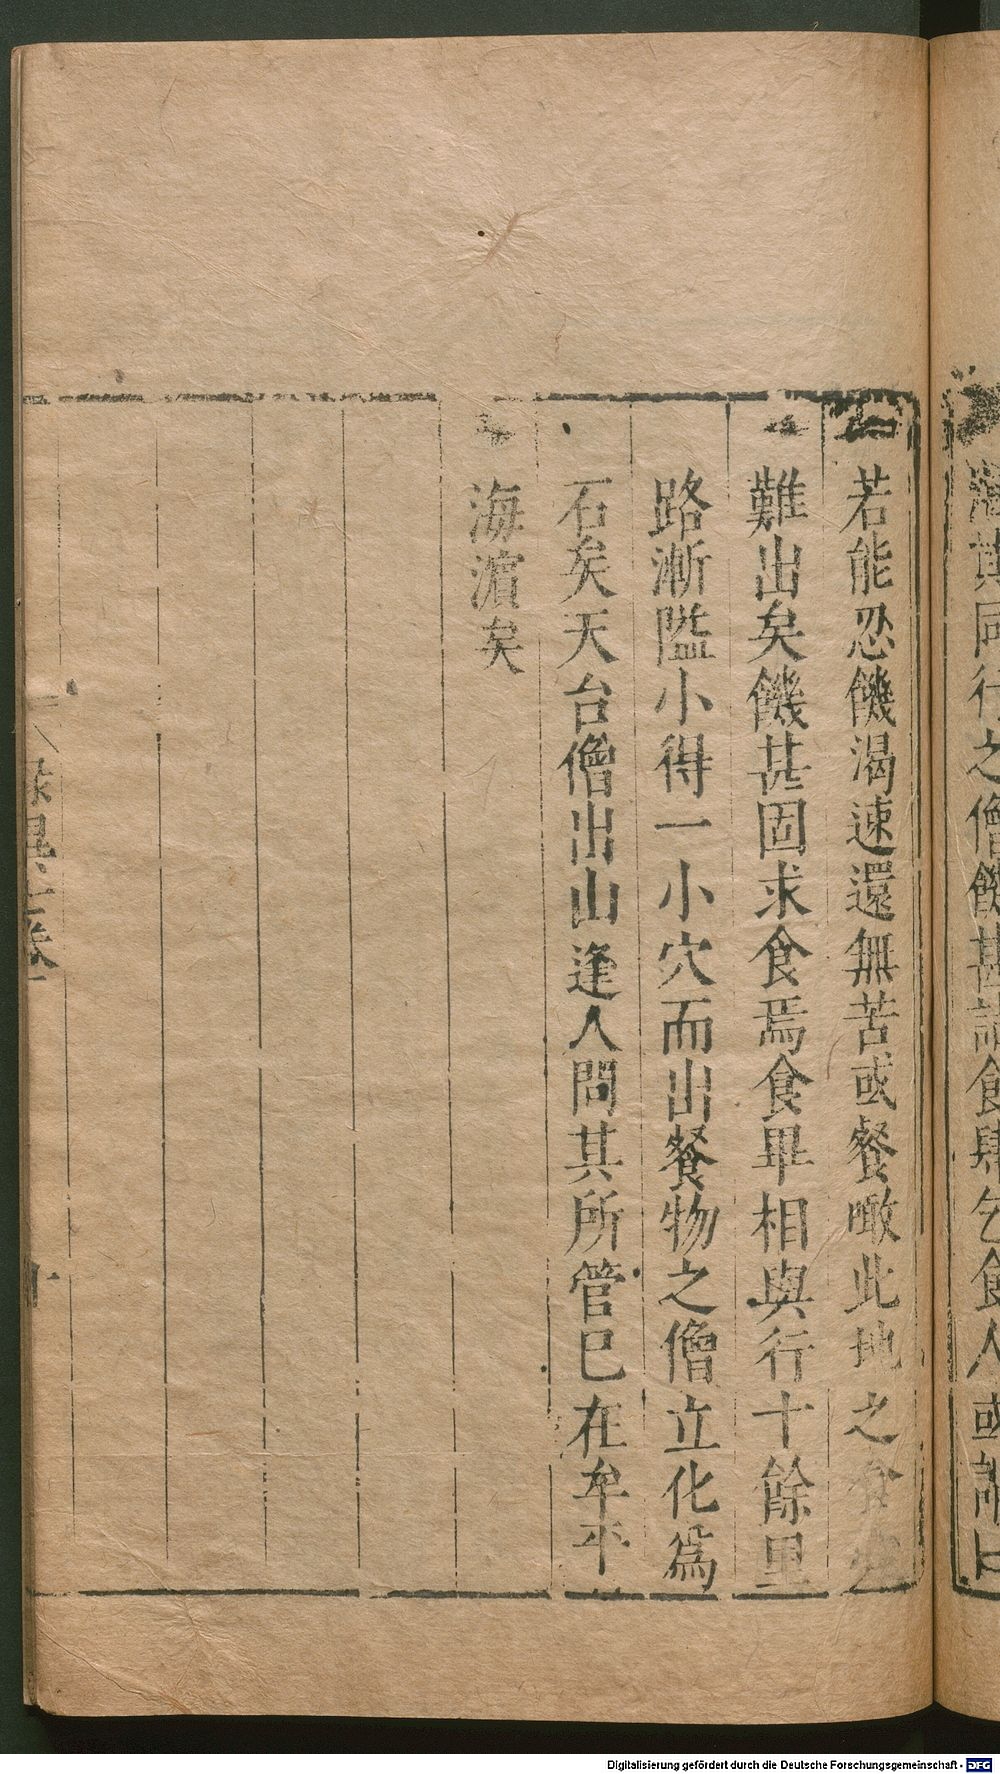 其同行之僧饑甚詣食肆乞食人或謂曰
若能忍饑渴速還無苦或餐噉此地之食
難出矣饑甚固求食焉食畢相與行十餘里
路漸隘小得一小穴而出餐物之僧立化爲
石矣天台僧出山逢人問其所管已在牟平
海濵矣
錄異
卷
十
Digitalisierung gefördert durch die Deutsche Forschungsgemeinschaft - DFG